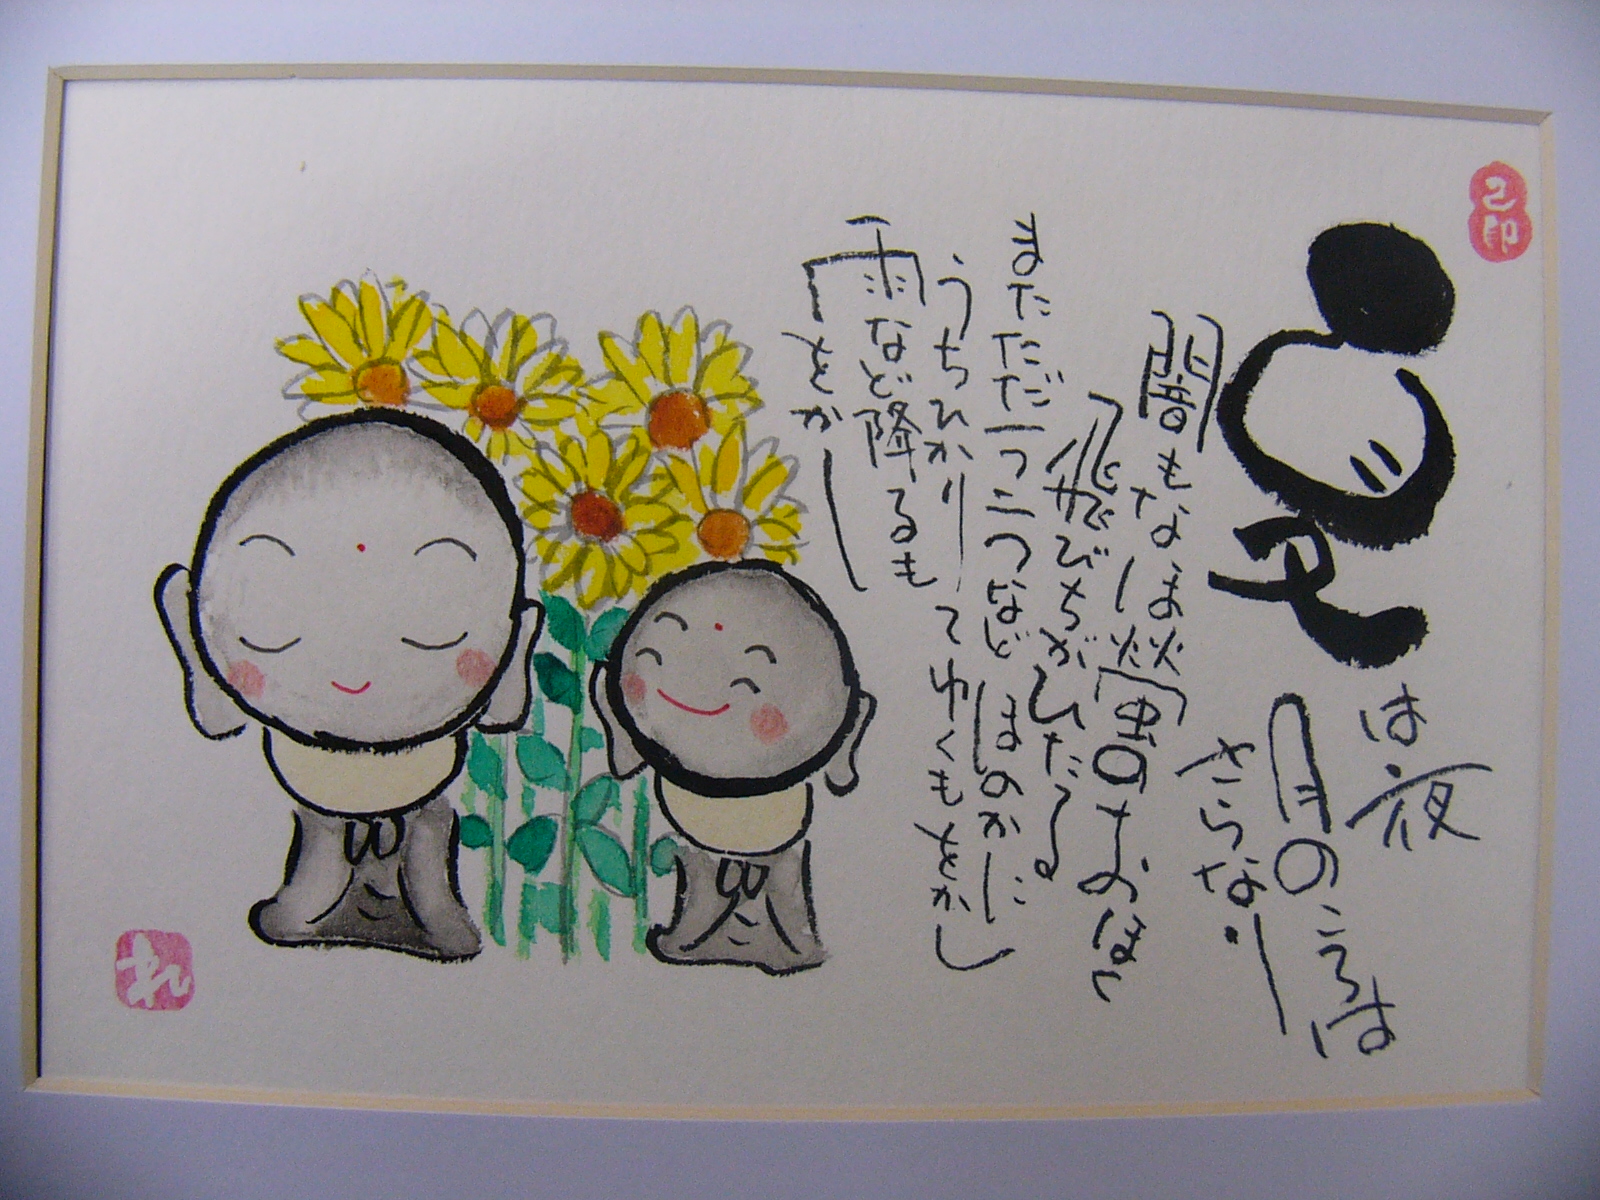 夏は夜
月のころは
さらなり
闇もなほ螢のおほく
飛びちがひたる
またただ一つ二つなどほのかに
うちひかりてゆくもをかし
雨など降るも
をかし
れ